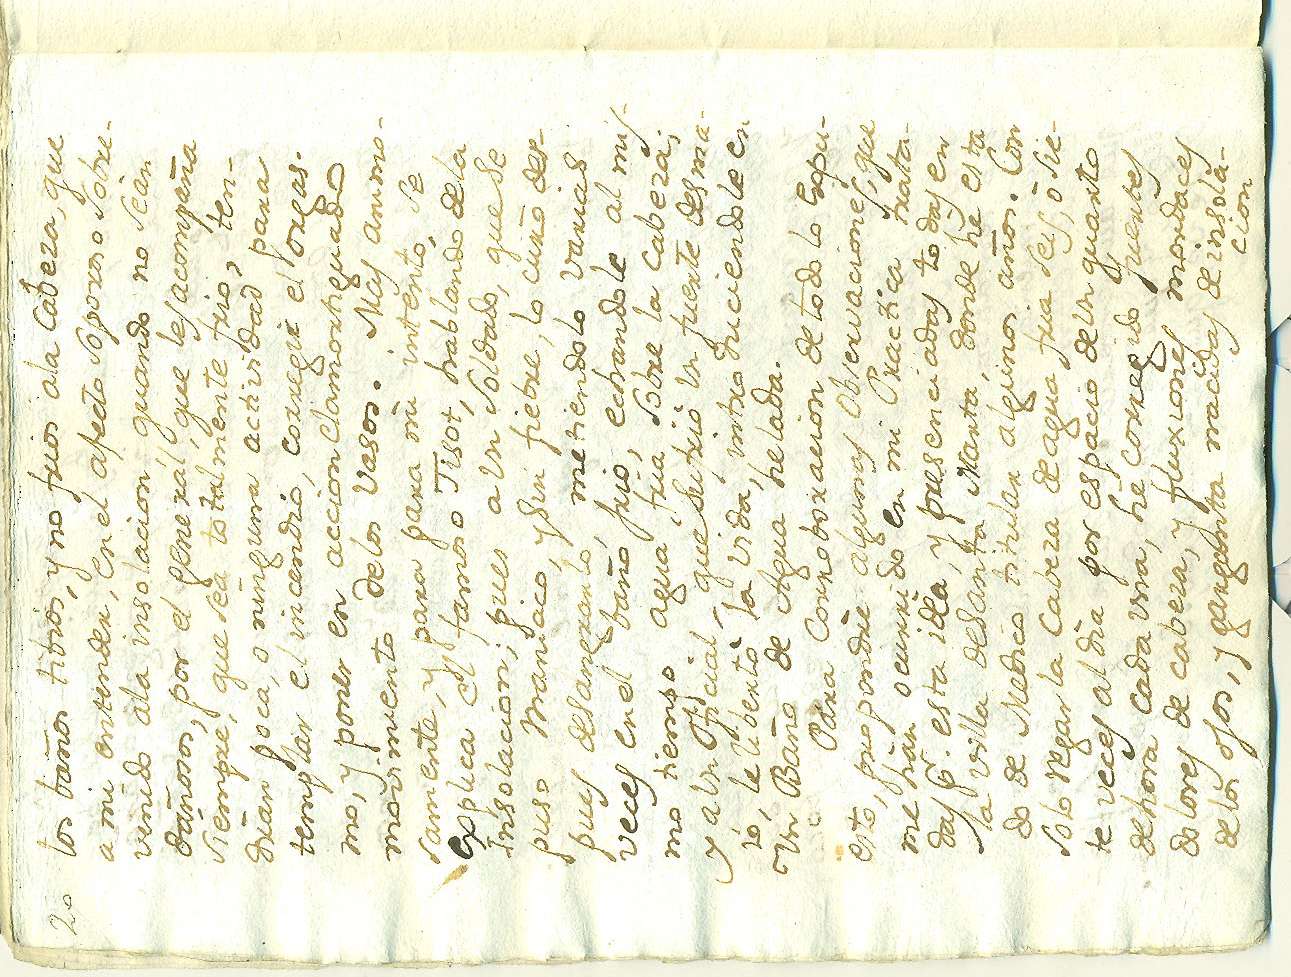 20
los baños tibios, y no frios ala Cabeza, que
a mi entender, en el afecto Soporoso Sobre-
venido ala insolacion quando no Seàn
dañosos, por el general, que les acompaña
siempre, que sea totalmente frio, ten-
dràn poca, o ninguna actividad para
templar el incendio, corregir el orgas-
mo, y poner en accion el amortiguado
movimiento delos Vasos. Mas animo-
samente, y para para mi intento, Se
explica el famoso Tisot, hablando dela
Insolacion; pues a un Soldado, que Se
puso Maniaco, y Sin fiebre, lo curò des-
pues desangrarlo, metiendolo varias
veces en el baño frio, echandole al mis-
mo tiempo agua fria Sobre la Cabeza;
y a un Oficial, que Sufriò un fuerte desma-
yò, le libertò la vida, introduciendole en
un Baño de Agua helada.
Para Corroboracion de todo lo expu-
esto, propondrè algunas Observaciones, que
me hàn ocurrido en mi Practica trata-
das pr. esta idèa, y presenciadas todas en
la villa de Santa Marta, donde hè esta
do de Medico titular algunos años. Con
solo regar la Cabeza de agua fria seis, ò sie-
te veces al dia por espacio de un quarto
de hora cada una, hè corregido fuertes
dolores de cabeza, y fluxiones mordaces
delos ojos, y garganta nacidas de insola-
cion